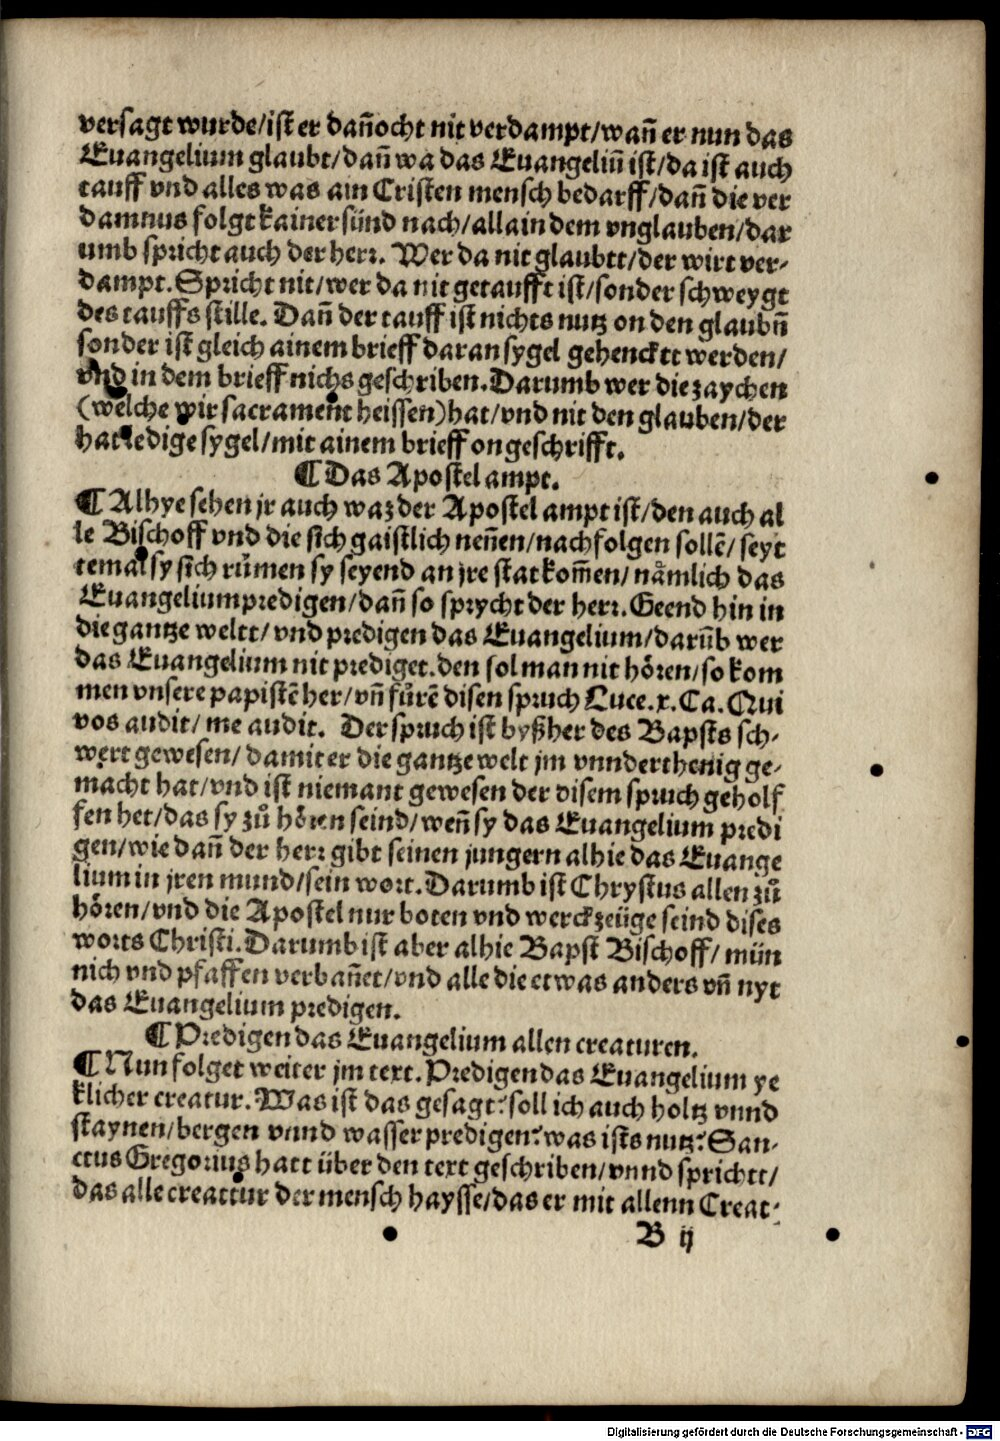 versagt wurde/ist er dañocht nit verdampt/wañ er nun das
Euangelium glaubt/dañ wa das Euangeliũ ist/da ist auch
tauff vnd alles was ain Cristen mensch bedarff/dañ die ver
damnus folgt kainer sünd nach/allain dem vnglauben/dar
umb spricht auch der herr. Wer da nit glaubtt/der wirt ver-
dampt. Spricht nit/wer da nit getaufft ist/sonder schweygt
des tauffs stille. Dañ der tauff ist nichts nutz on den glaubñ
sonder ist gleich ainem brieff daran sygel gehencktt werden/
vnd in dem brieff nichs geschriben. Darumb wer die zaychen
(welche wir sacrament heissen) hat/vnd nit den glauben/der
hat ledige sygel/mit ainem brieff on geschrifft.
¶ Das Apostel ampt.
¶ Alhye sehen jr auch waz der Apostel ampt ist/den auch al
le Bischoff vnd die sich gaistlich neñen/nachfolgen sollẽ/seyt
temal sy sich růmen sy seyend an jre stat kom̃en/nämlich das
Euangelium predigen/dañ so sprycht der herr. Geend hin in
die gantze weltt/vnd predigen das Euangelium/darũb wer
das Euangelium nit prediget. den sol man nit hören/so kom
men vnsere papistẽ her/vñ fürẽ disen spruch Luce. x. Ca. Qui
vos audit/me audit. Der spruch ist byßher des Bapsts sch-
wert gewesen/damit er die gantze welt jm vnnderthenig ge-
macht hat/vnd ist niemant gewesen der disem spruch geholf
fen het/das sy zů hören seind/weñ sy das Euangelium predi
gen/wie dañ der herr gibt seinen jungern alhie das Euange
lium in jren mund/sein wort. Darumb ist Chrystus allen zů
hören/vnd die Apostel nur boten vnd werckzeüge seind dises
worts Christi. Darumb ist aber alhie Bapst Bischoff/mün
nich vnd pfaffen verbañet/vnd alle die etwas anders vñ nyt
das Euangelium predigen.
¶ Predigen das Euangelium allen creaturen.
¶ Nun folget weiter jm text. Predigen das Euangelium ye
klicher creatur. Was ist das gesagt? soll ich auch holtz vnnd
staynen/bergen vnnd wasser predigen? was ists nutz? San-
ctus Gregorius hatt über den text geschriben/vnnd sprichtt/
das alle creattur der mensch haysse/das er mit allenn Creat-
B ij
Digitalisierung gefördert durch die Deutsche Forschungsgemeinschaft - DFG